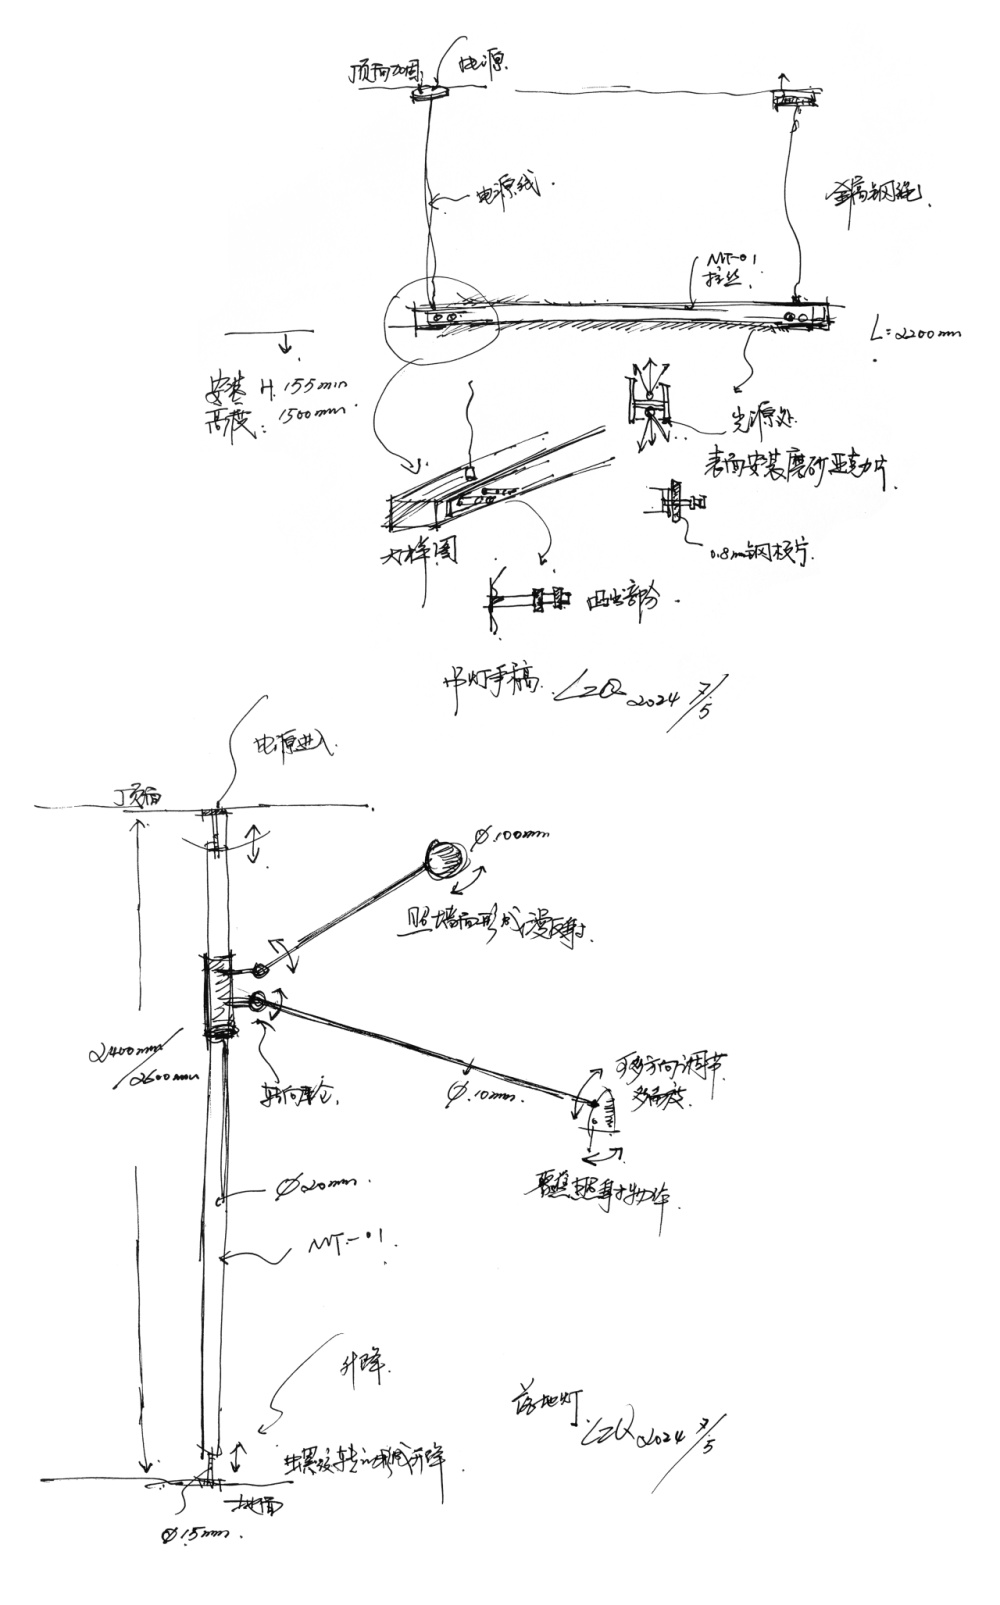 顶面加固
电源
电源线
钢绳
MT-01
拉丝
L=2200mm
安装 H.155mm
高度: 1500mm
光源处
表面安装磨砂亚克力片
0.8mm钢板片
大样图
凸出部分
吊灯手稿 LZQ 2024 7/5
电源进入
顶面
Φ.100mm
照墙面形成漫反射
2400mm
/2600mm
转向
Φ.10mm
可多方向调节
多角度
聚焦照射
Φ20mm
MT-01
升降
螺纹转 升降
地面
Φ15mm
落地灯
LZQ 2024 7/5